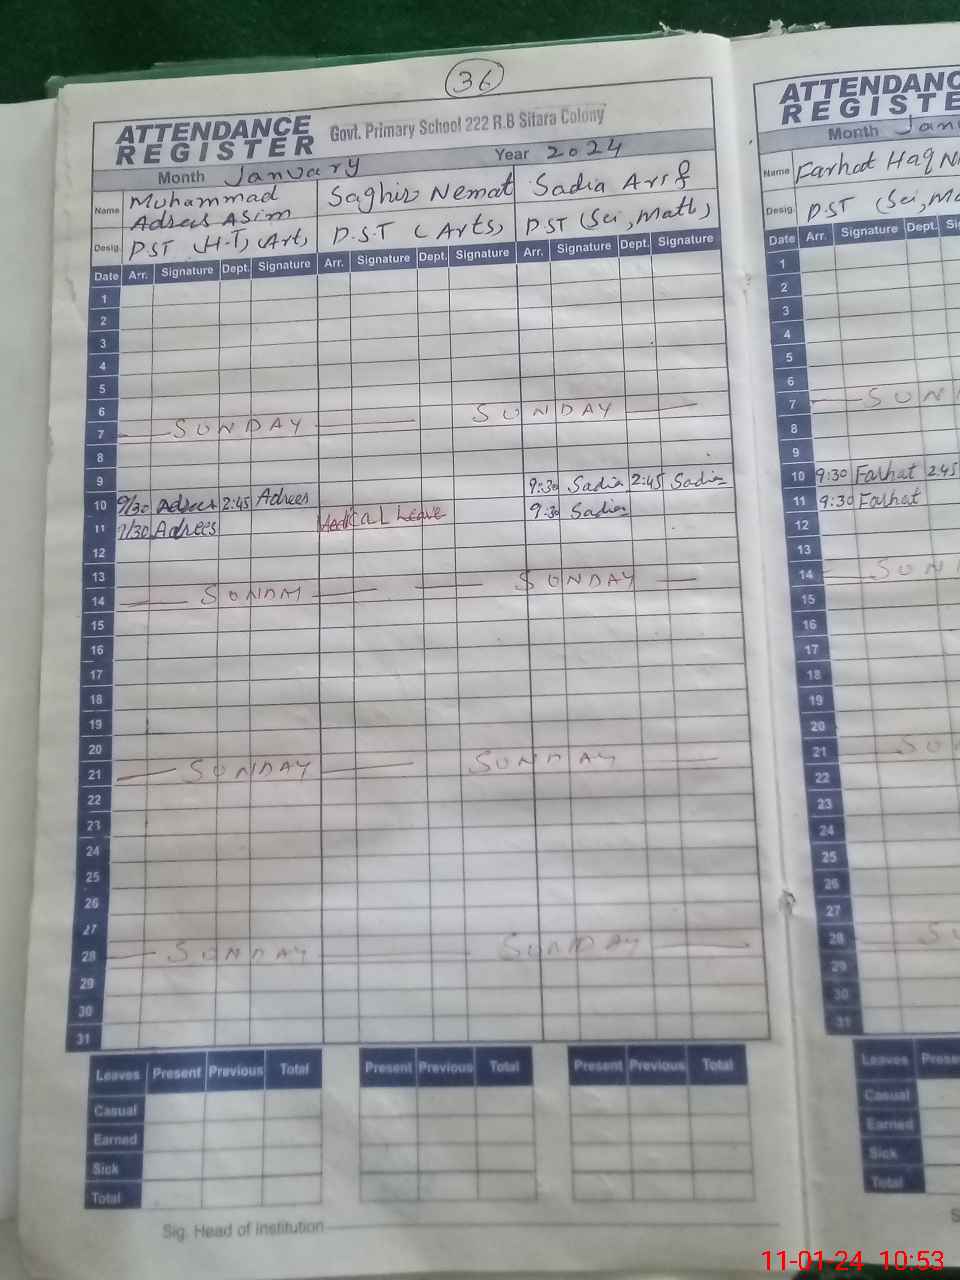 36
ATTENDANCE REGISTER Govt. Primary School 222 R.B Sitara Colony
Month January Year 2024
Name Muhammad Adrees Asim Saghir Nemat Sadia Arif
Desig. PST (H.T) (Art) P.S.T (Arts) PST (Sci, Math)
Date Arr. Signature Dept. Signature Arr. Signature Dept. Signature Arr. Signature Dept. Signature
1
2
3
4
5
6
7 SUNDAY SUNDAY
8
9
10 9/30 Adrees 2:45 Adrees 9:30 Sadia 2:45 Sadia
11 9/30 Adrees Medical Leave 9:30 Sadia
12
13
14 SUNDAY SUNDAY
15
16
17
18
19
20
21 SUNDAY SUNDAY
22
23
24
25
26
27
28 SUNDAY SUNDAY
29
30
31
Leaves Present Previous Total Present Previous Total Present Previous Total
Casual
Earned
Sick
Total
Sig. Head of institution
ATTENDANC
REGISTE
Month Jan
Name Farhat Haq N
Desig. PST (Sci, Ma
Date Arr. Signature Dept. Si
1
2
3
4
5
6
7 SUN
8
9
10 9:30 Farhat 2:45
11 9:30 Farhat
12
13
14 SUN
15
16
17
18
19
20
21 SU
22
23
24
25
26
27
28 SU
29
30
31
Leaves Prese
Casual
Earned
Sick
Total
S
11-01-24 10:53